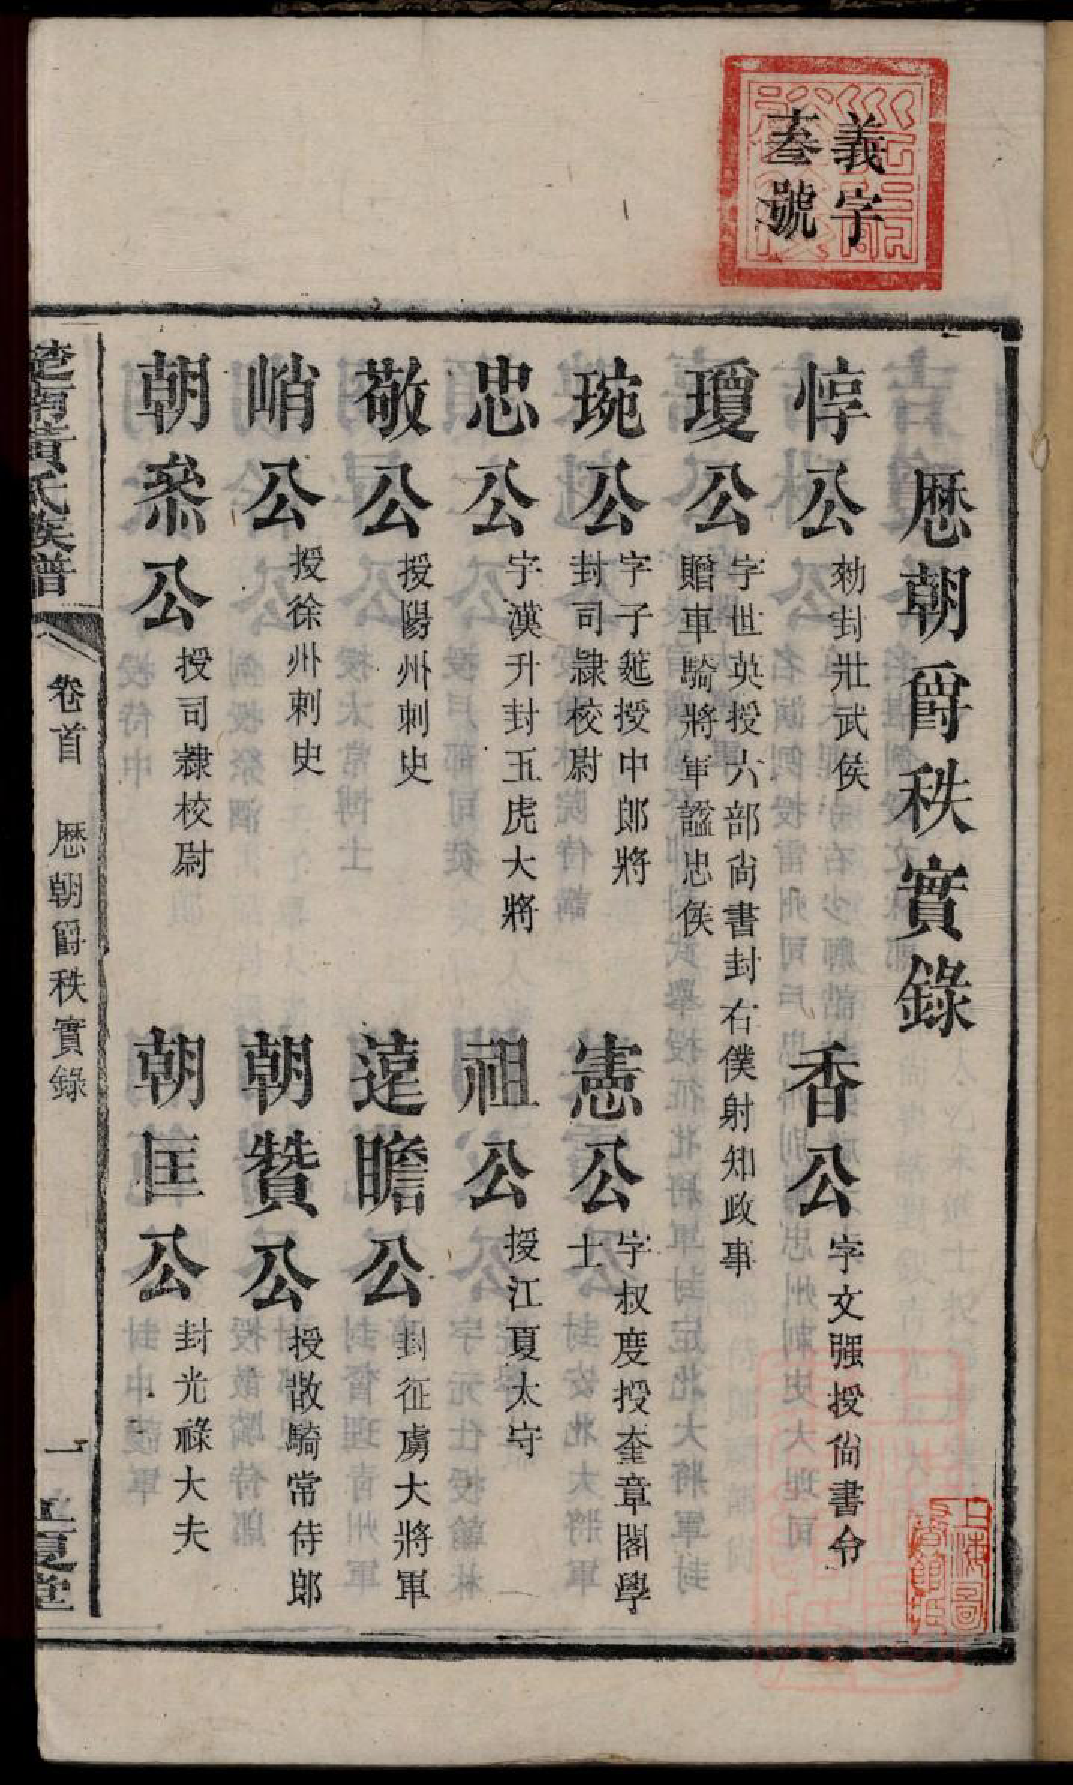 義字
叄號
歷朝爵秩實錄
惇公 勑封壯武侯
香公 字文强授尙書令
瓊公 字世英授六部尙書封右僕射知政事
贈車騎將軍謚忠侯
琬公 字子琰授中郎將
封司隷校尉
憲公 字叔度授奎章閣學
士
忠公 字漢升封五虎大將
祖公 授江夏太守
敬公 授陽州刺史
薳瞻公 封征虜大將軍
峭公 授徐州刺史
朝贊公 授散騎常侍郎
朝叅公 授司隷校尉
朝匡公 封光祿大夫
楚南黃氏族譜
卷首 歷朝爵秩實錄
一
江夏堂
上海圖
書館藏